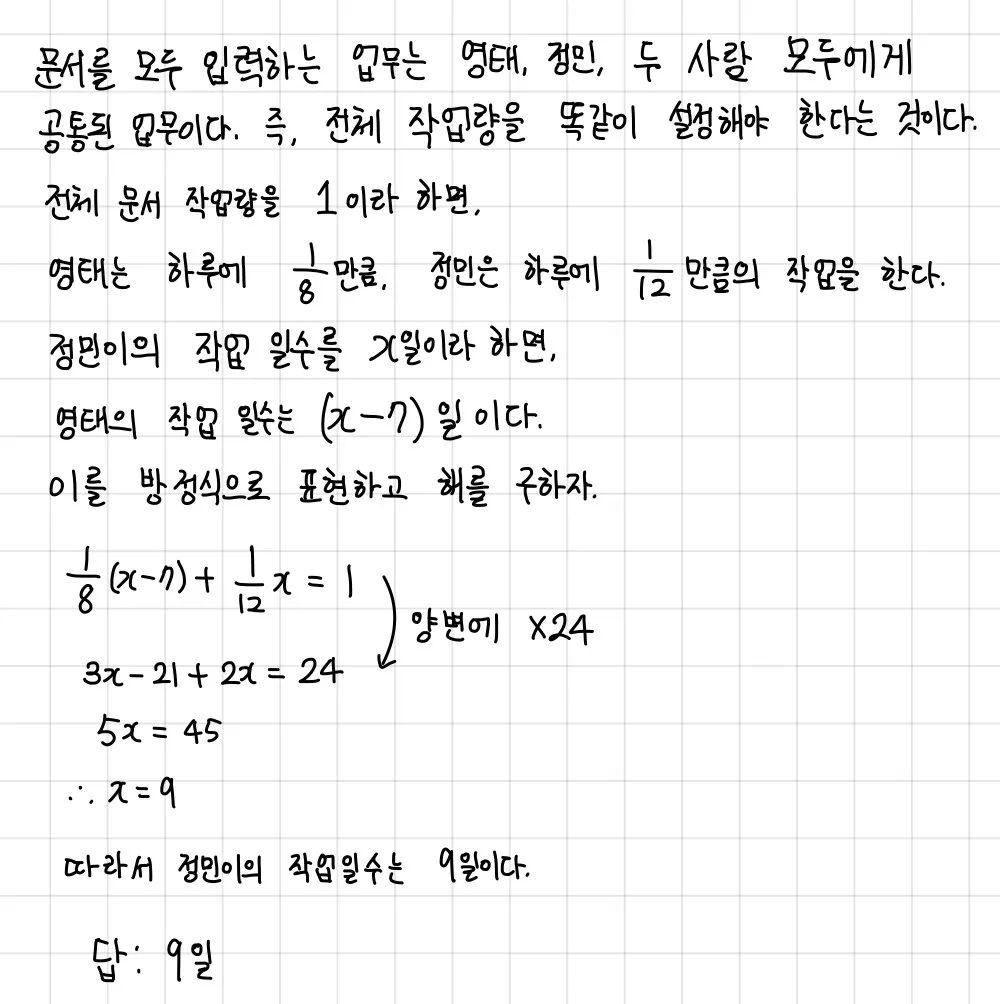 문서를 모두 입력하는 업무는 영태, 정민, 두 사람 모두에게
공통된 업무이다. 즉, 전체 작업량을 똑같이 설정해야 한다는 것이다.
전체 문서 작업량을 1이라 하면,
영태는 하루에 1/8 만큼, 정민은 하루에 1/12 만큼의 작업을 한다.
정민이의 작업 일수를 x일이라 하면,
영태의 작업 일수는 (x-7)일이다.
이를 방정식으로 표현하고 해를 구하자.
1/8(x-7) + 1/12x = 1
양변에 ×24
3x - 21 + 2x = 24
5x = 45
∴ x = 9
따라서 정민이의 작업일수는 9일이다.
답: 9일